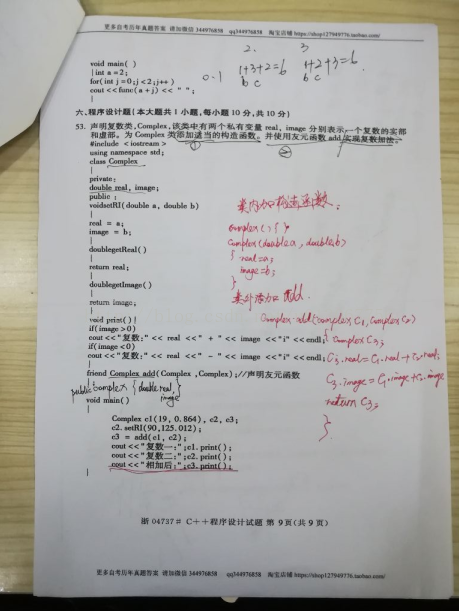 更多自考历年真题答案 请加微信 344976858 qq344976858 淘宝店铺 https://shop127949776.taobao.com/
2. 3
void main( )
{int a=2;
for(int j=0;j<2;j++)
cout <<func(a+j) << " ";
}
0.1 1+3+2=6 1+2+3=6
b c b c
六、程序设计题(本大题共 1 小题,每小题 10 分,共 10 分)
53. 声明复数类,Complex,该类中有两个私有变量 real, image 分别表示一个复数的实部
和虚部。为 Complex 类添加适当的构造函数。并使用友元函数 add 实现复数加法。
① ②
#include <iostream>
using namespace std;
class Complex
{
private:
double real, image;
public :
voidsetRI(double a, double b)
{
real = a;
image = b;
}
doublegetReal()
{
return real;
}
doublegetImage()
{
return image;
}
void print(){
if(image>0)
cout <<"复数:" << real <<" + " << image <<"i" <<endl;
if(image<0)
cout <<"复数:" << real <<" - " << image <<"i" <<endl;
}
friend Complex add(Complex ,Complex);//声明友元函数
public complex {double real,
image }
void main()
{
Complex c1(19, 0.864), c2, c3;
c2. setRI(90,125.012);
c3 = add(c1, c2);
cout <<"复数一:";c1. print();
cout <<"复数二:";c2. print();
cout <<"相加后:";c3. print();
}
类内加构造函数:
complex(){ }
Complex(double a, double b)
{ real=a;
image=b;
}
类外添加 add.
Complex add(complex C1, Complex C2)
{ Complex C3;
C3.real=C1.real+C2.real;
C3.image=C1.image+C2.image
return C3;
}
浙 04737# C++程序设计试题 第 9页(共 9 页)
更多自考历年真题答案 请加微信 344976858 qq344976858 淘宝店铺 https://shop127949776.taobao.com/